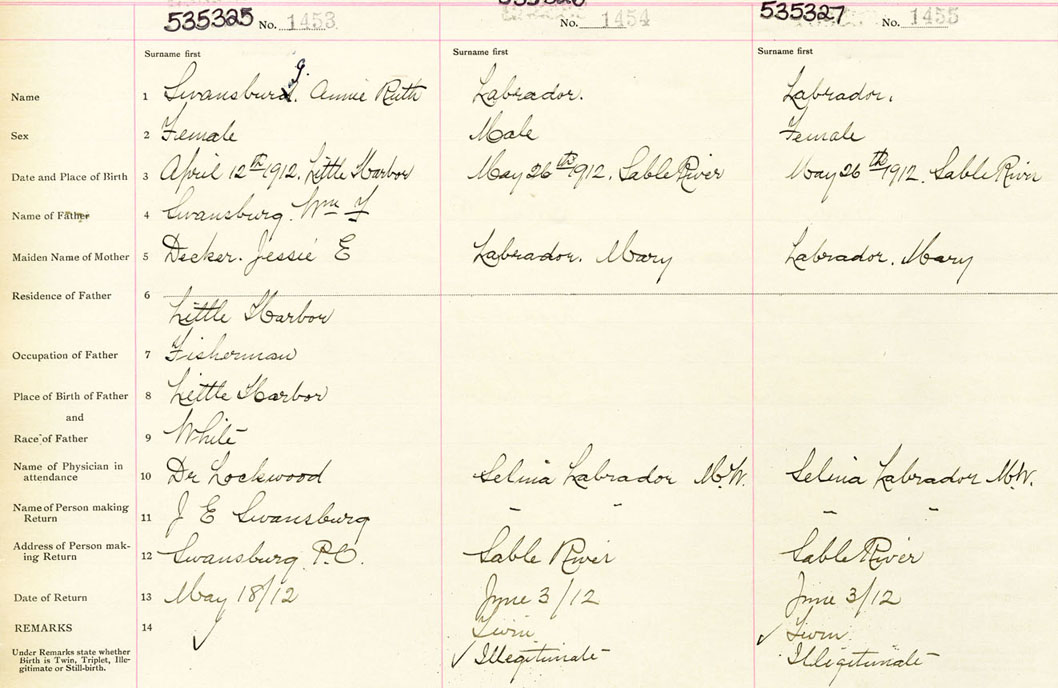 535325 No. 1453 No. 1454 535327 No. 1455
Surname first Surname first Surname first
Name 1 Swansburg. Annie Ruth Labrador. Labrador.
Sex 2 Female Male Female
Date and Place of Birth 3 April 12th 1912. Little Harbor May 26th 1912. Sable River May 26th 1912. Sable River
Name of Father 4 Swansburg. Wm Y
Maiden Name of Mother 5 Decker. Jessie E Labrador. Mary Labrador. Mary
Residence of Father 6
Little Harbor
Occupation of Father 7 Fisherman
Place of Birth of Father 8 Little Harbor
and
Race of Father 9 White
Name of Physician in
attendance 10 Dr Lockwood Selina Labrador M.W. Selina Labrador M.W.
Name of Person making
Return 11 J E Swansburg " " " "
Address of Person mak-
ing Return 12 Swansburg P.O. Sable River Sable River
Date of Return 13 May 18/12 June 3/12 June 3/12
REMARKS 14 ✓ Twin ✓ Twin
Under Remarks state whether
Birth is Twin, Triplet, Ille-
gitimate or Still-birth.
✓ Illegitimate Illigitimate